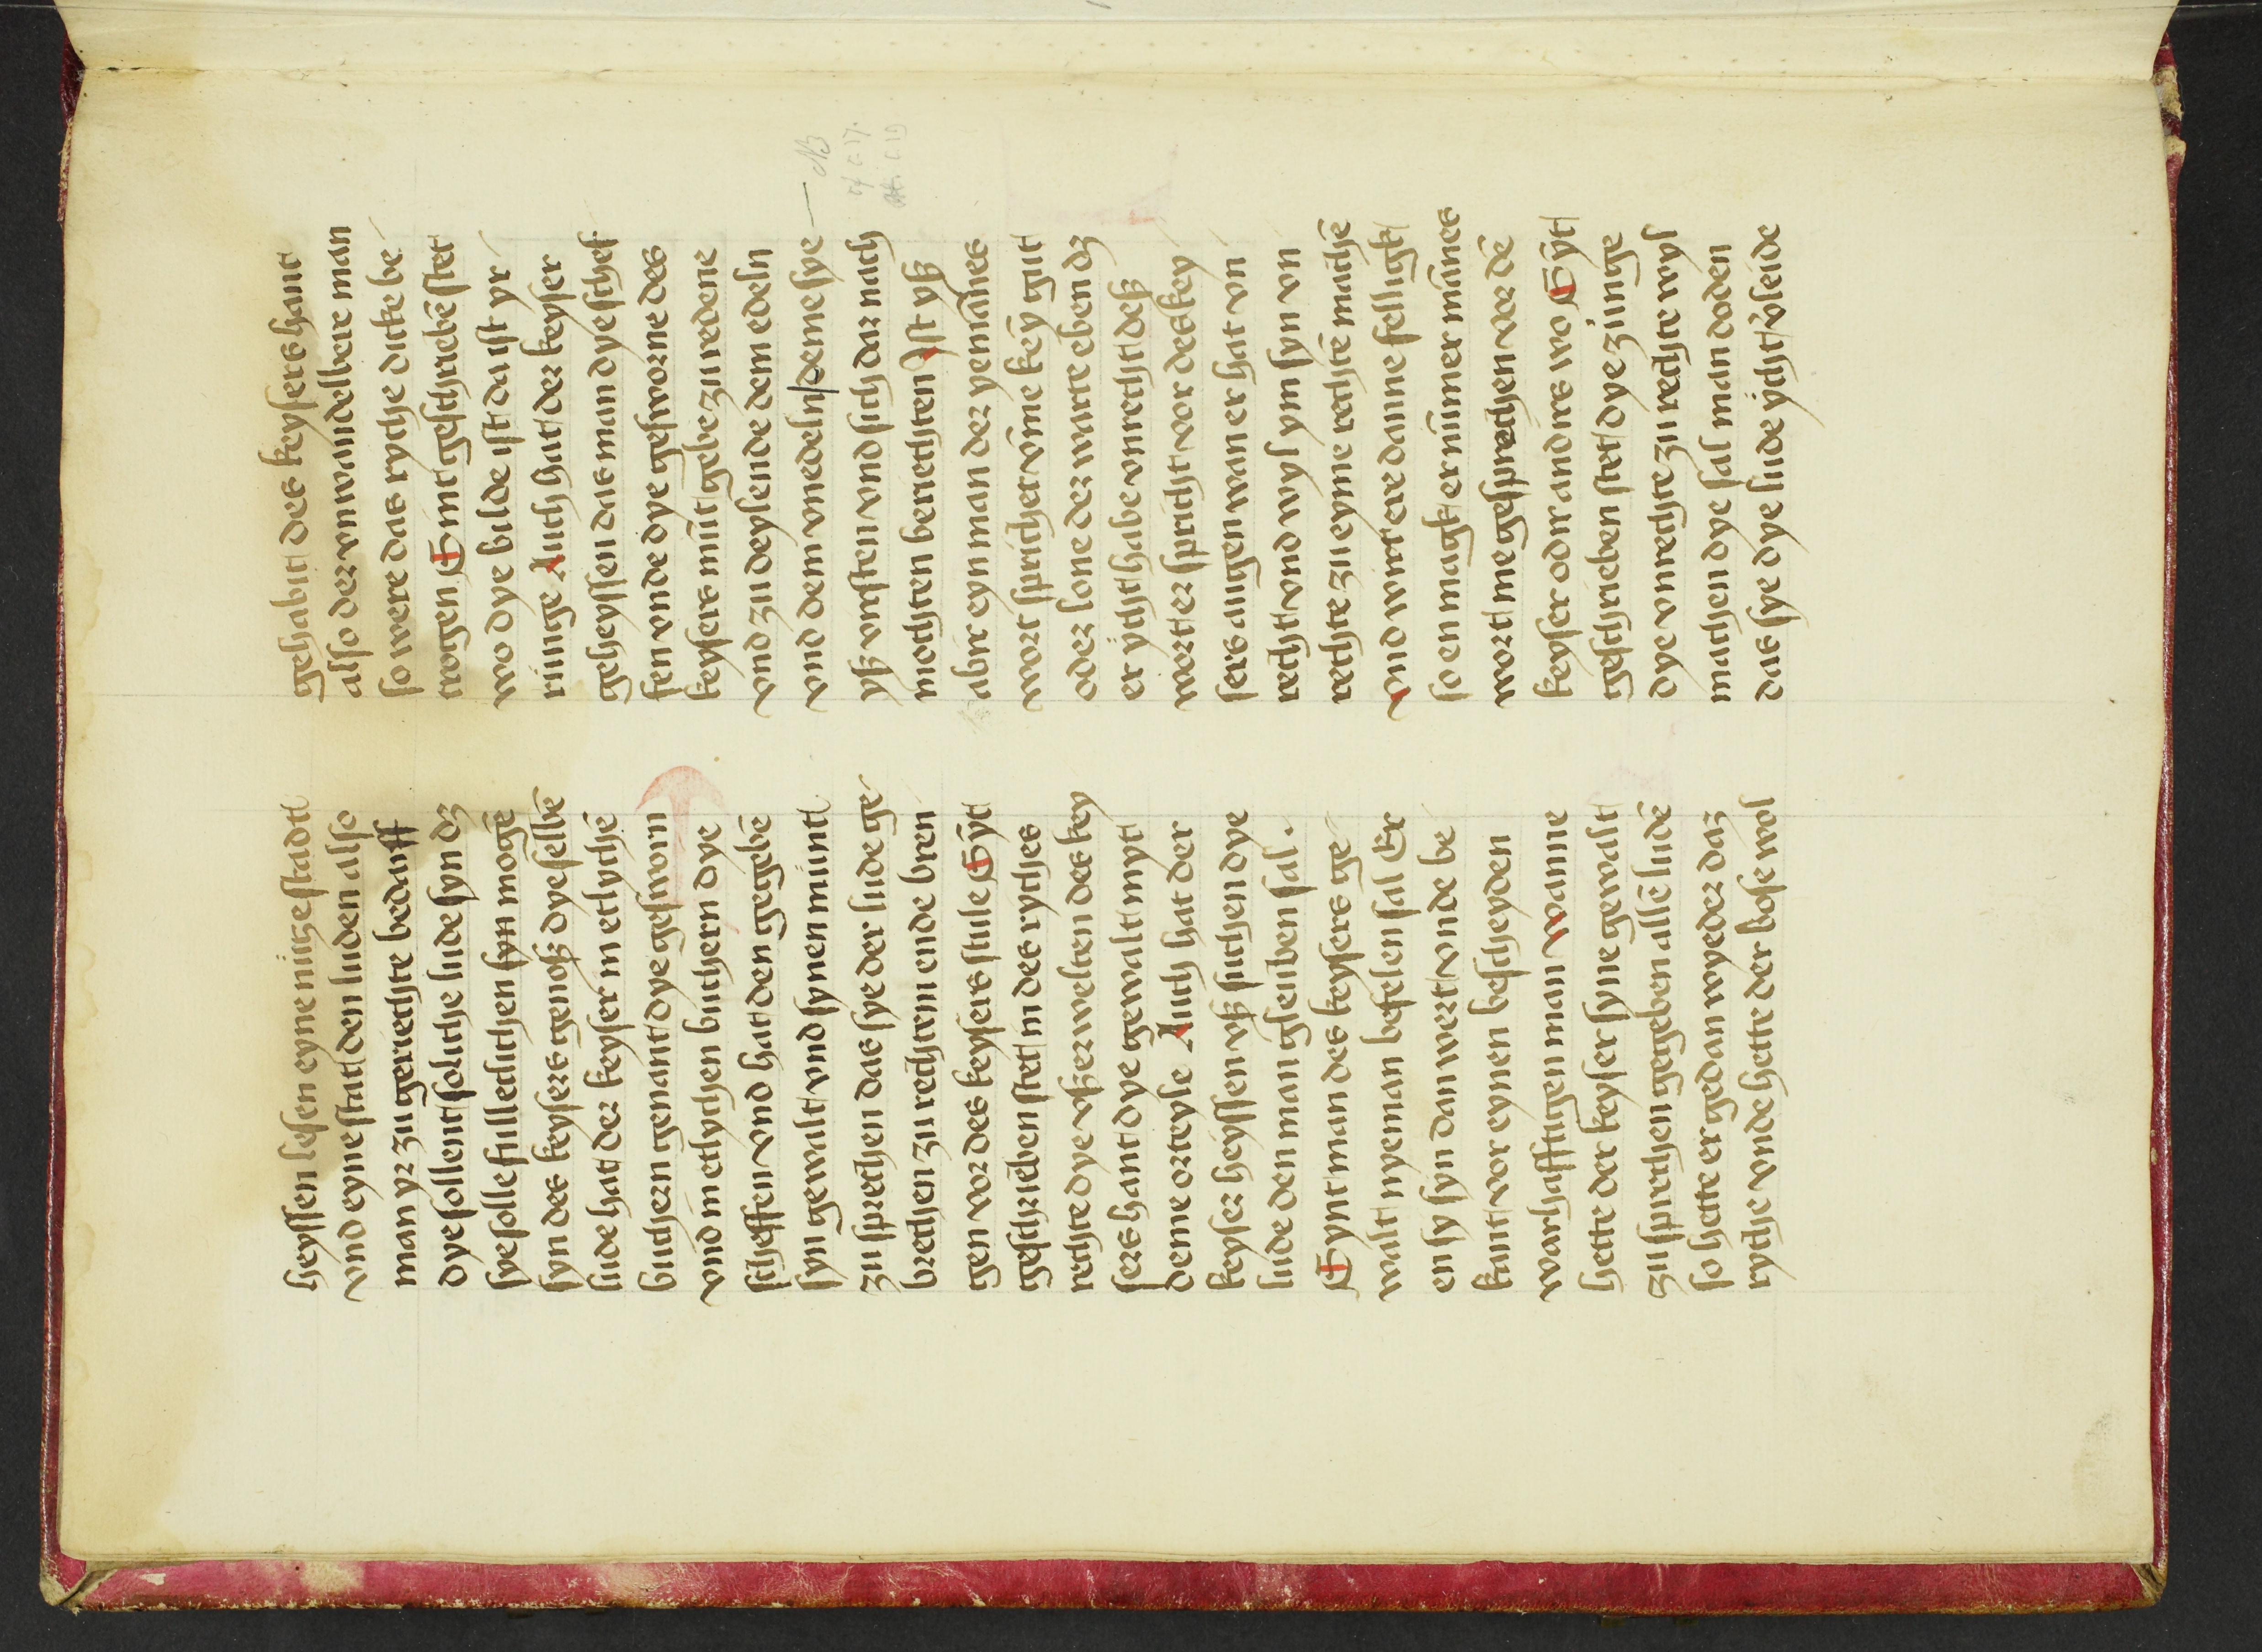 heyssen lesen eyne nůtze stadt
vnd eyne stat den luden also
man yr zu gerichte bedauff
dye sollent soliche lude syn dz
sye solle fulleclichen syn mogē
syn des keysers genoß dye selbē
lude hat der keyser in etlychē
buchern genant dye gesworn
vnd in etlychen buchern dye
scheffen vnd hat den gegebē
syn gewalt vnd synen munt
zu sprechen das sye der lude ge
brechen zu rechtem ende bren
gen vor des keysers stule Eÿt
geschrieben stet in des ryches
rechte dye vßerwelten des key
sers hant dye gewalt myt
deme orteyle Auch hat der
keyser heyssen vß suchen dye
lude den man gleuben sal .
Eynt man des keysers ge
walt nyeman befelen sal Er
en sy syn dan wert vnde be
kant vor eynen bescheyden
warhafftigen man wanne
hette der keyser syne gewalt
zu sprechen gegeben allē ludē
so hette er gedan wyeder daz
ryche vnde hette der bose wol
gehabit des keysers hant
also der vnwandelbere man
so were das ryche dicke be
trogen Eint geschriebē stet
wo dye bilde ist da ist yr
runge Auch hat der keyser
geheyssen das man dye schef
fen vnde dye gesworne des
keysers mūt gebe zu redene
vnd zu deylende dem edeln
vnd dem vnedeln deme sye
yß vrsten vnd sich dar nach
mochten berichten Ist yß
abir eyn man der yemānes
wort sprichet vme keȳ gut
oder lone der warte eben dz
er ÿcht habe vnrecht deß
wort er spricht vor des key
sers augen wan er hat vn
recht vnd wyl ym syn vn
rechte zu eyme rechtē machē
vnd wirt ere danne felligk
so en magk er nūmer mānes
wort me gesprechen ver dē
keyser odir andirs wo Eÿt
geschrieben stet dye zunge
dye vnrechte zu rechte wyl
machen dye sal man doden
das sye dye lude ÿcht v̓leide
NB
cf c. 17.